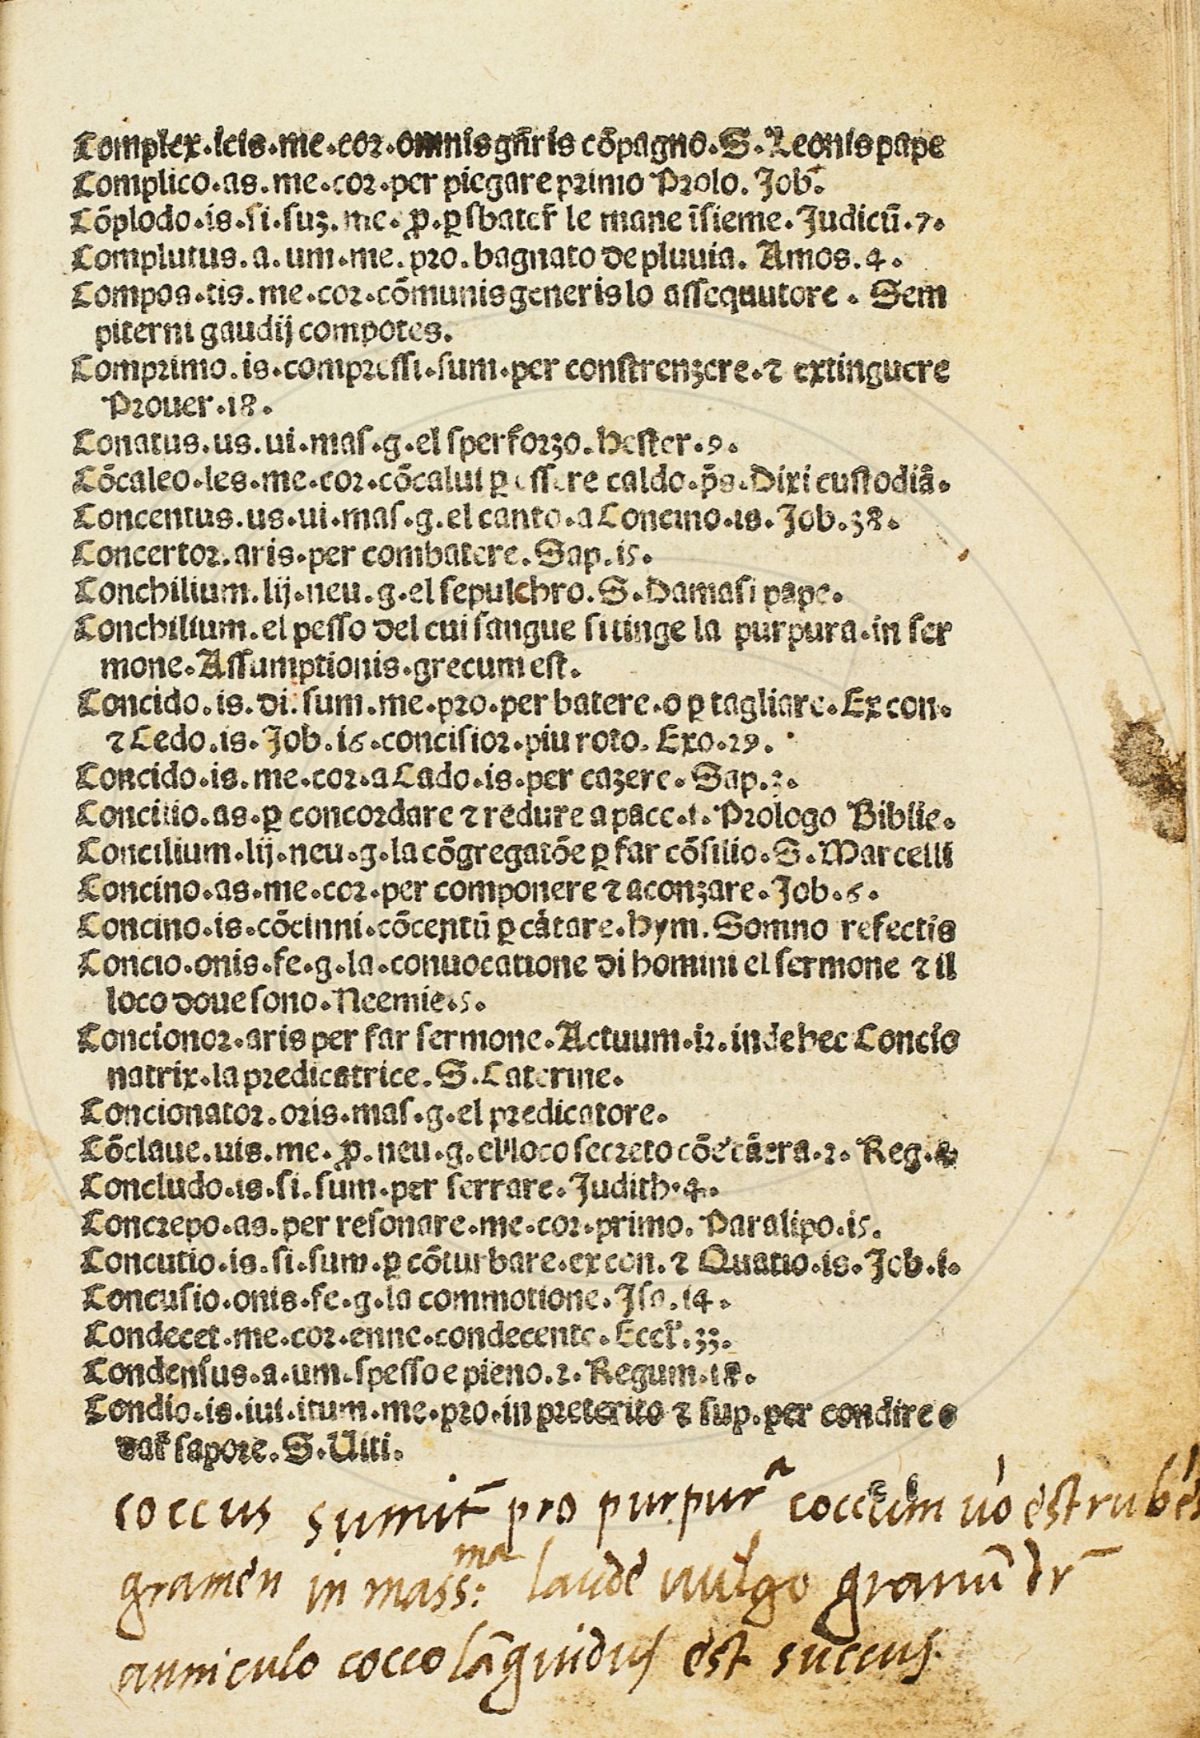 Complex.icis.me.cor.omnis gn̄ris cõpagno.S.Leonis pape
Complico.as.me.cor.per piegare primo Prolo.Job.
Cõplodo.is.si.suz.me.ꝓ.ꝑ sbater̃ le mane ĩsieme.Judicũ.7.
Complutus.a.um.me.pro.bagnato de pluuia. Amos.4.
Compos.tis.me.cor.cõmunis generis lo assequutore. Sem
piterni gaudij compotes.
Comprimo.is.compressi.sum.per constrenzere.⁊ extinguere
Prouer.18.
Conatus.us.ui.mas.g.el sperforzo.Hester.9.
Cõcaleo.les.me.cor.cõcalui ꝑ essere caldo.p̃s.Dixi custodiã.
Concentus.us.ui.mas.g.el canto.a Concino.is.Job.38.
Concertor.aris.per combatere.Sap.15.
Conchilium.lij.neu.g.el sepulchro.S.Damasi pape.
Conchilium.el pesso del cui sangue si tinge la purpura.in ser
mone.Assumptionis.grecum est.
Concido.is.di.sum.me.pro.per batere.o ꝑ tagliare.Ex con.
⁊ Cedo.is.Job.16.concisior.piu roto.Exo.29.
Concido.is.me.cor.a Cado.is.per cazere.Sap.3.
Concilio.as.ꝑ concordare ⁊ redure a pace.1.Prologo Biblie.
Concilium.lij.neu.g.la cõgregatõe ꝑ far cõsilio.S.Marcelli
Concino.as.me.cor.per componere ⁊ aconzare.Job.6.
Concino.is.cõcinni.cõcentũ ꝑ cãtare.Hym.Somno refectis
Concio.onis.fe.g.la.conuocatione di homini el sermone ⁊ il
loco doue sono.Neemie.5.
Concionor.aris per far sermone.Actuum.12.inde hec Concio
natrix.la predicatrice.S.Caterine.
Concionator.oris.mas.g.el predicatore.
Cõclaue.uis.me.ꝓ.neu.g.el loco secreto cõe cãera.2.Reg.4
Concludo.is.si.sum.per serrare.Judith.4.
Concrepo.as.per resonare.me.cor.primo.Paralipo.15.
Concutio.is.si.sum.ꝑ cõturbare.ex con.⁊ Quatio.is.Job.1.
Concusio.onis.fe.g.la commotione.Isa.14.
Condecet.me.cor.enne.condecente.Eccl̃.33.
Condensus.a.um.spesso e pieno.2.Regum.18.
Condio.is.iui.itum.me.pro.in preterito ⁊ sup.per condire o
dar̃ sapore.S.Uiti.
coccus sumit̃ pro purpurᵃ coccum uo est rubẽs
gramen in mass:ᵐᵃ laude uulgo granũ dr̃
anniculo cocco lãguidus est succus.